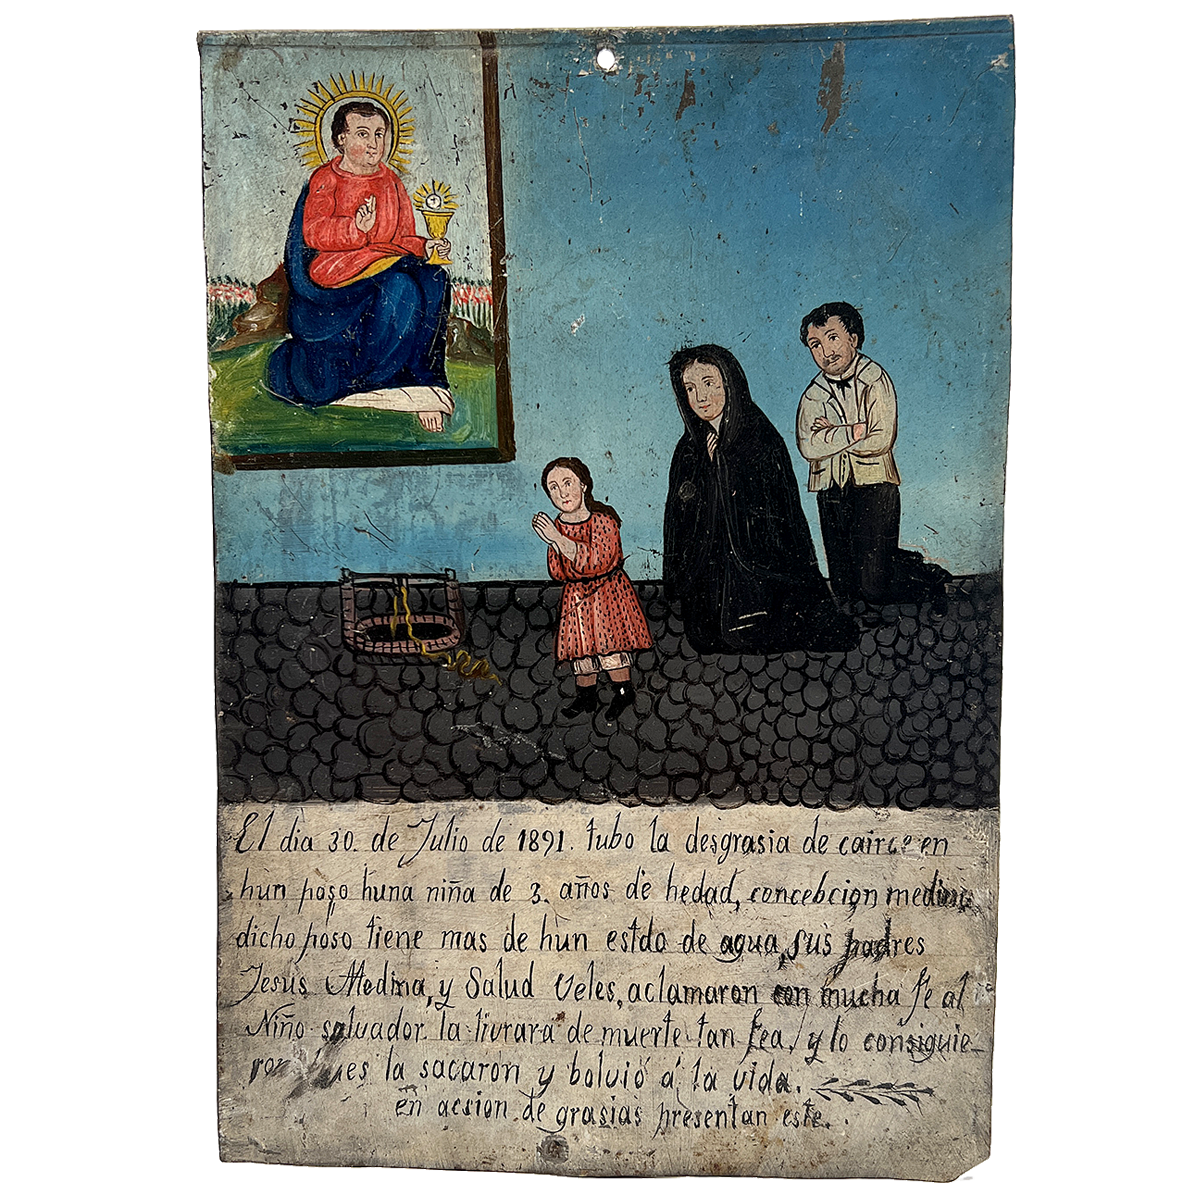 El dia 30. de Julio de 1891. tubo la desgrasia de cairce en
hun poso huna niña de 3. años de hedad, concebcion medina
dicho poso tiene mas de hun estdo de agua, sus padres
Jesus Medina, y Salud Veles, aclamaron con mucha fe al
Niño salvador la livrara de muerte tan fea, y lo consiguie-
ron pues la sacaron y bolvió á la vida.
en acsion de grasias presentan este.